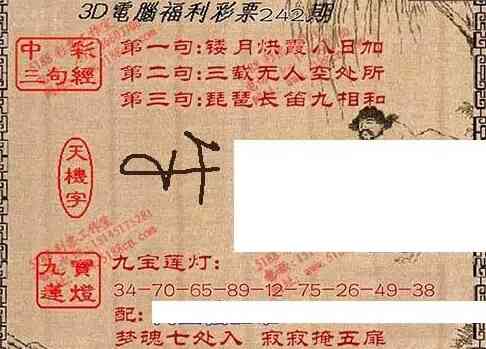 3D電腦福利彩票242期
中彩三句經
第一句:镂月烘霞八日加
第二句:三载无人空处所
第三句:琵琶长笛九相和
天機字
九寶蓮燈
九宝莲灯:
34-70-65-89-12-75-26-49-38
配:
梦魂七处入 寂寂掩五扉